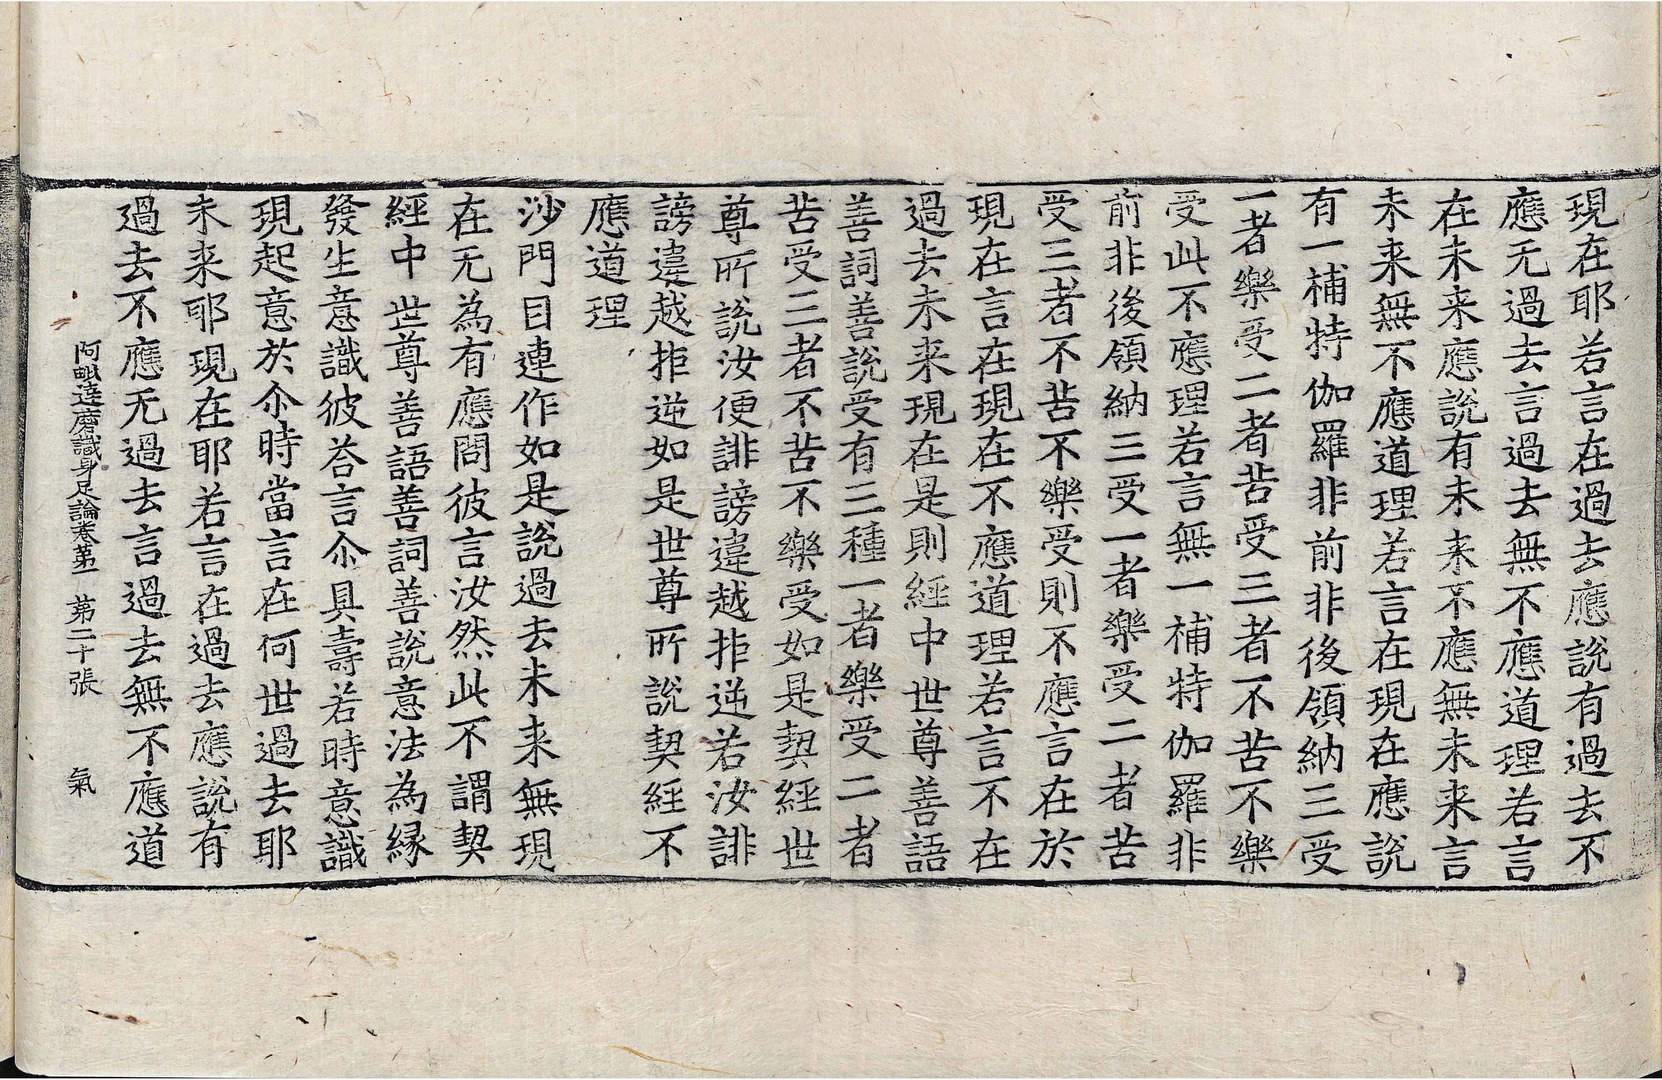 現在耶若言在過去應說有過去不
應无過去言過去無不應道理若言
在未来應說有未来不應無未来言
未来無不應道理若言在現在應說
有一補特伽羅非前非後領納三受
一者樂受二者苦受三者不苦不樂
受此不應理若言無一補特伽羅非
前非後領納三受一者樂受二者苦
受三者不苦不樂受則不應言在於
現在言在現在不應道理若言不在
過去未来現在是則經中世尊善語
善詞善說受有三種一者樂受二者
苦受三者不苦不樂受如是契經世
尊所說汝便誹謗違越拒逆若汝誹
謗違越拒逆如是世尊所說契經不
應道理
沙門目連作如是說過去未来無現
在无為有應問彼言汝然此不謂契
經中世尊善語善詞善說意法為緣
發生意識彼荅言尒具壽若時意識
現起意於尒時當言在何世過去耶
未来耶現在耶若言在過去應說有
過去不應无過去言過去無不應道
阿毗達磨識身足論卷第一　第二十張　氣